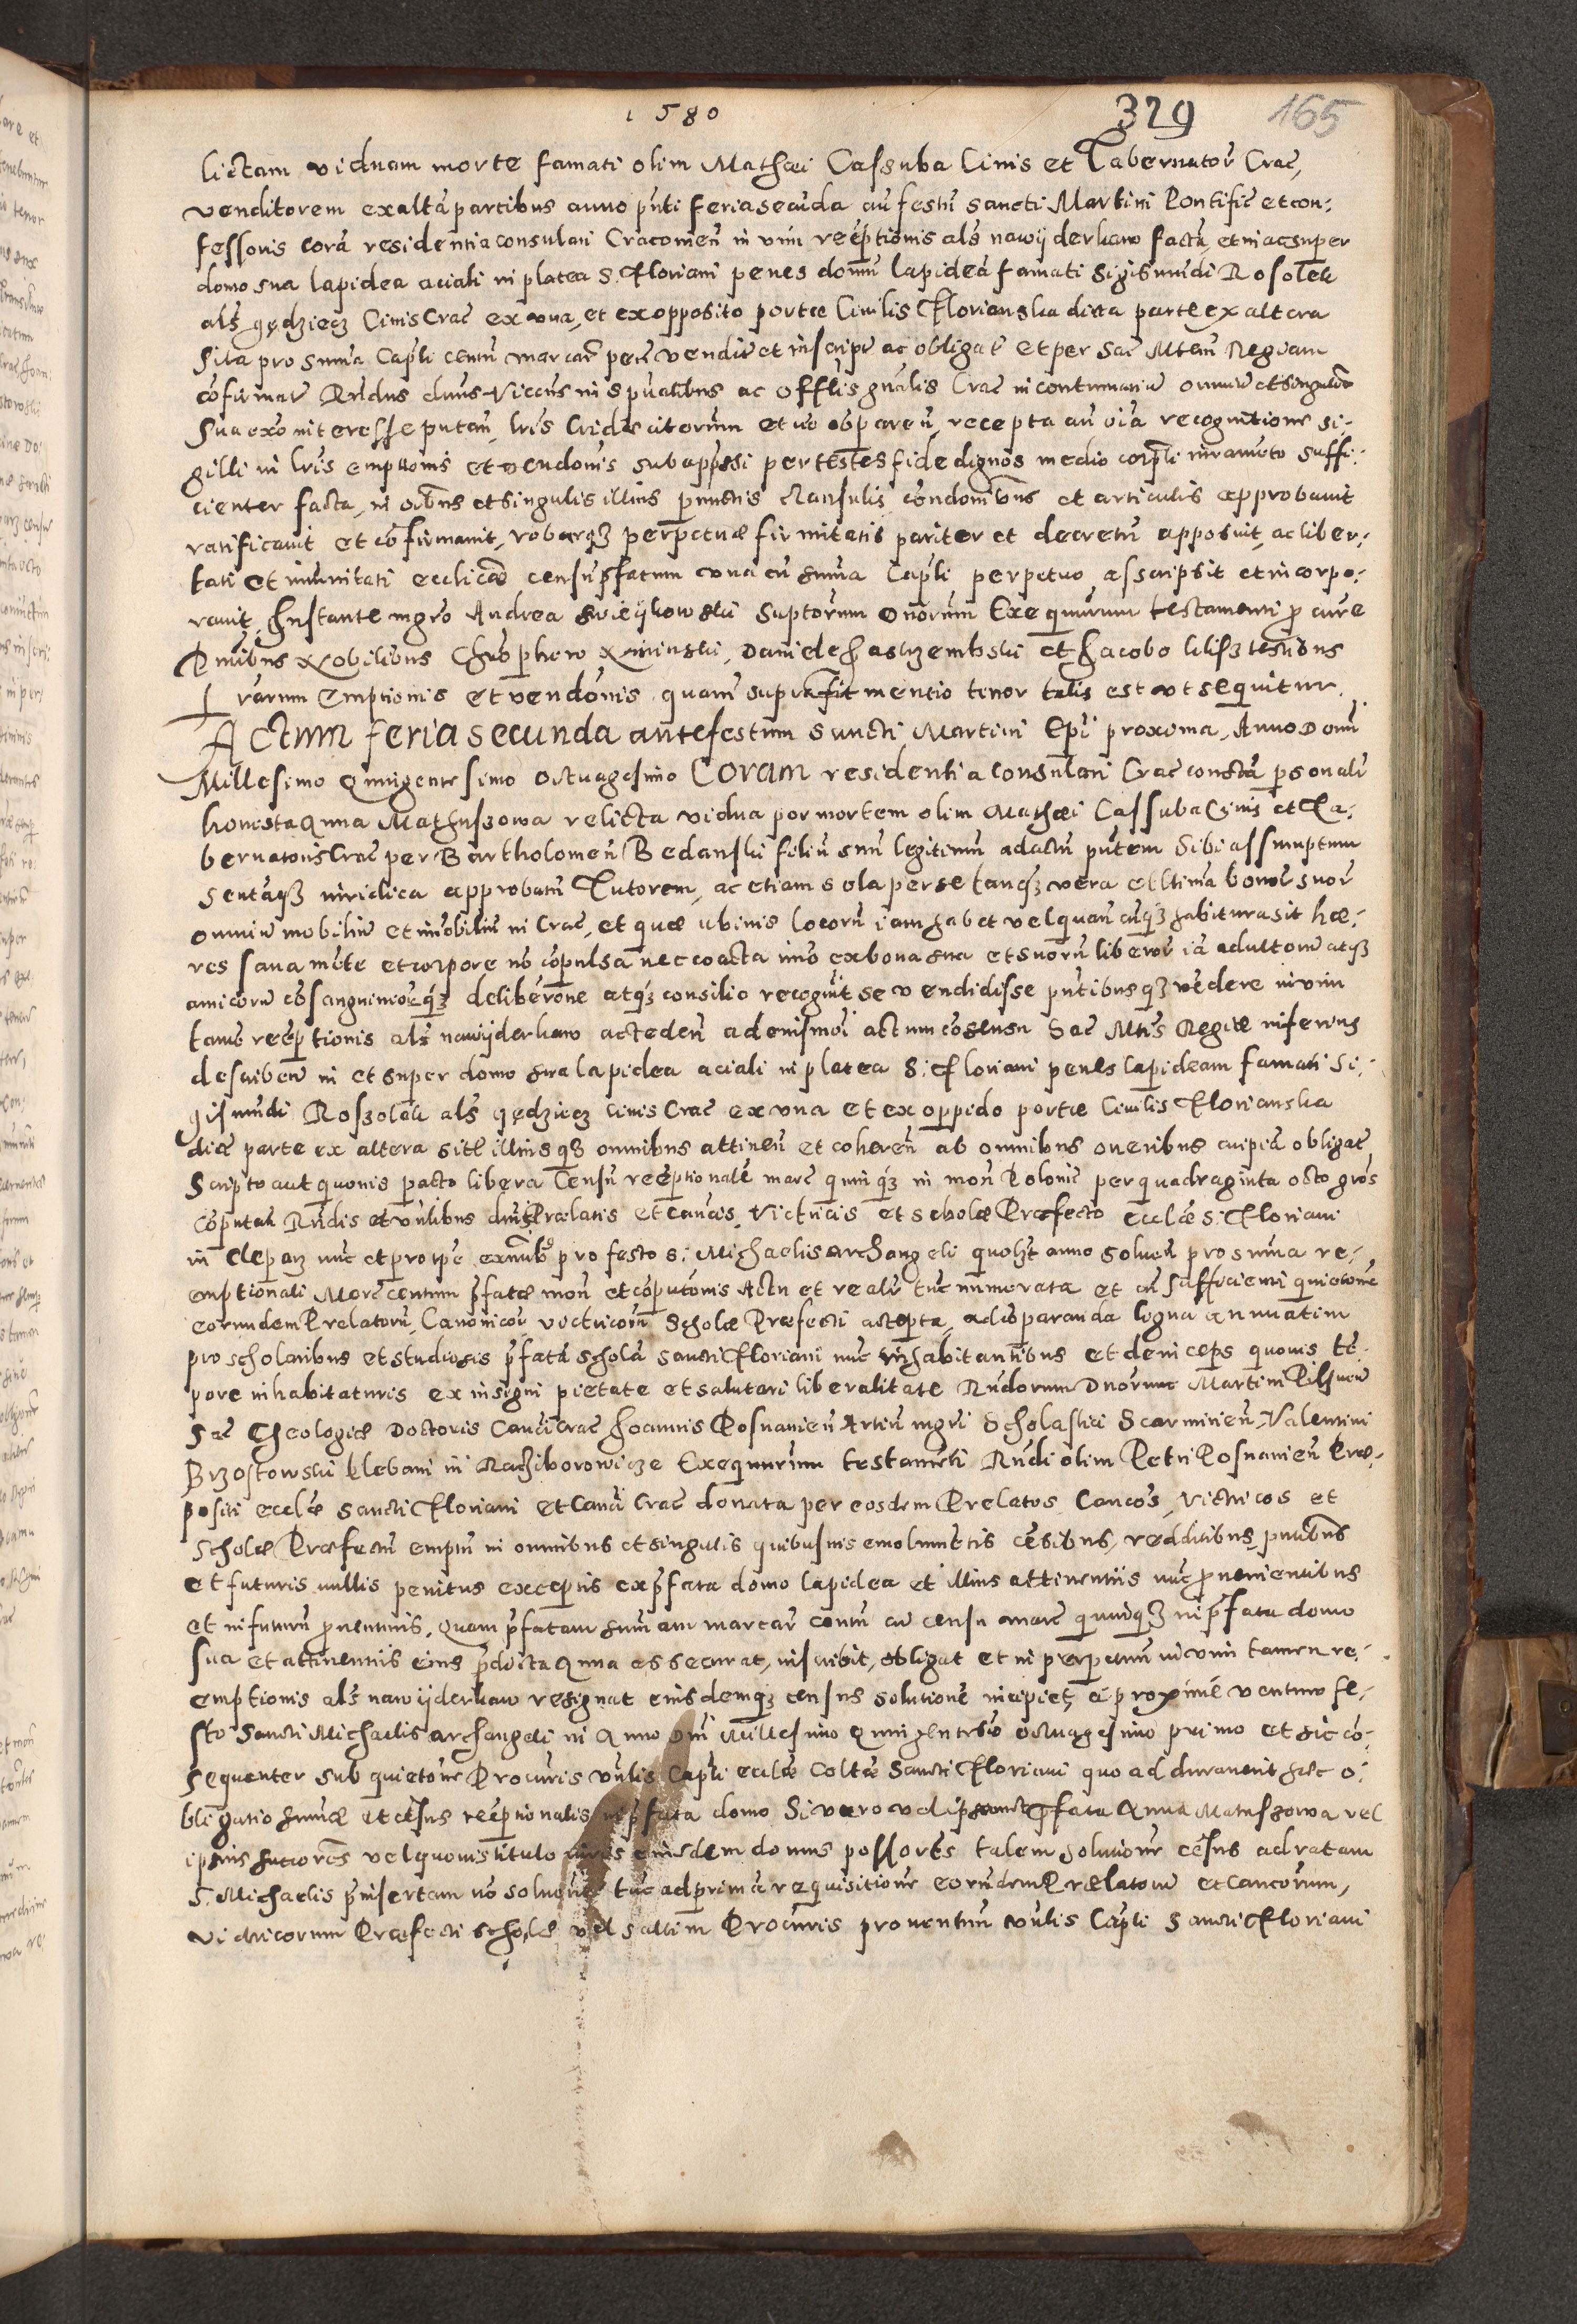 1580
329
165
lictam viduam morte famati olim Mathæi Cassuba Civis et Tabernator Crac,
venditorem ex altã partibus anno pñti feria secũda añ festũ sancti Martini Pontific et con:
fessoris corã residentia consulari Cracovieñ in vim reẽptionis als nawÿderkaw factã, et in ac super
domo sua lapidea aciali in platea S. Floriani penes domũ lapideã famati Sigismundi Rosolek
als gędziecz Civis Crac ex una, et ex opposito portæ Civilis Florianska dicta parte ex altera
sita pro summa Capli centũ marcar pecũ venditũ et inscript ac obligat et per Sac Mtem Regiam
cõfirmat Rndus dnus Vicarius in spũalibus ac Offlis gñalis Crac in contumatiã omniũ et singulor
sua exõ interesse putañ, lris Cridæ citorum et nõ obpareñ, recepta añ oia recognitione si-
gilli in lris emptionis et vendonis subappssi per testes fide dignos medio corpli iuramẽto suffi:
cienter facta, in oibus et singulis illius punctis clausulis cõndonibus et articulis approbavit
ratificavit et cõfirmavit, roburqz perpetuæ firmitatis pariter et decretũ apposuit, ac liber:
tati et immunitati ecclicæ censũ pfatum una cũ summa Capli perpetuo asscripsit et incorpo:
ravit Instante mgro Andrea swiezkowski suptorum dnorum Exequutorum testamenti p cure
Pntibus Nobilibus Christophoro Xminski, Daniele Jastrzembski et Jacobo lilisz testibus
Lrarum Emptionis et vendonis quarũ supra fit mentio tenor talis est ut sequitur.
Actum feria secunda ante festum Sancti Martini Epi proxima, Anno Domi
Millesimo Quingentesimo octuagesimo Coram residentia consulari Crac constã psonalr
honesta Anna Mathuszowa relicta vidua por mortem olim Mathæi Cassuba Civis et Ta:
bernatoris Crac per Bartholomeũ Bedanski filiũ suũ legitimũ ad actũ pntem sibi assumptum
sentaqz iuridica approbatũ Tutorem, ac etiam sola per se tanqz vera et ltima bonor suor
omniũ mobiliũ et immobiliũ in Crac, et quæ ubivis locorũ iam habet vel quancũqz habitura sit hæ:
res sana mẽte et corpore nõ cõpulsa nec coacta imo ex bona sua et suorũ liberor iã adultorũ atqz
amicorũ cõsanguineorqz deliberõne atqz consilio recognvit se vendidisse pntibusqz vẽdere in vim
tamẽ reẽptionis als nawÿderkaw accedeñ ad enismoi actum cõsensu Sac Mtis Regiæ inferius
describeñ in et super domo sua lapidea aciali in platea S: Floriani penes lapideam famati Si-
gismundi Roszolek als gędziecz civis Crac ex una et ex oppido portæ Civilis Florianska
dicã parte ex altera sitæ illiusqz omnibus attineñ et cohereñ ab omnibus oneribus cuipiã obligat
scripto aut quovis pacto libera Censũ reẽptionalẽ marc quinqz in moñ Polonic per quadraginta octo gros
cõputañ Rndis et vñlibus dñis Prælatis et Cañcis, Victricis et scholæ Præfecto ecclæ S. Floriani
in Clepar nũc et pro tpe exñtibus pro festo S: Michaelis archangeli quolzt anno solueñ pro summa re-
emptionali Marc centum pfatæ moñ et cõputonis Actu et realr tũc numerata et cũ sufficienti quietone
eorumdem Prelatorũ, Canonicor, victricorũ Scholæ Præfecti accepta, ad cõparanda ligna annuatim
pro scholaribus et studiosis pfatã scholã sancti Floriani nũc inhabitantibus et deinceps quovis tẽ-
pore inhabitaturis ex insigni pietate et salutari liberalitate Rndorum Dnorum Martini Pilsneñ
Sac Theologiæ Doctoris Cañci Crac Joannis Posnanieñ Artiũ mgri Scholastici Scarmirieñ, Valentini
Brzostowski plebani in Raciborowicze Exequutorum testamẽti Rndi olim Petri Posnanieñ Præ-
positi ecclæ sancti Floriani et Cañci Crac donata per eosdem Prelatos Cancos, Victricos et
Scholæ Præfectũ emptũ in omnibus et singulis quibusvis emolumẽtis cẽsibus, redditibus pntibus
et futuris nullis penitus exceptis ex pfata domo lapidea et illius attinentiis nũc provenientibus
et in futurũ pventuris. Quam pfatam summam marcar centũ cũ censu marc quinqz in pfata domo
sua et attinentiis eius pdicta Anna assecurat, inscribit, obligat et in perpetuum in vim tamen re-
emptionis als nawÿderkaw resignat eiusdemqz census solutione incipiet, a proxime venturo fe-
sto Sancti Michaelis archangeli in Anno Dni Millesimo Quingentesimo octuagesimo primo et sic cõ-
sequenter sub quietone Procuris vñlis Capli ecclæ Coltæ Sancti Floriani quo ad duraverit hæc o-
bligatio summæ et cẽsus reẽptionalis in pfata domo Si vero pfata Anna Matuszowa vel
ipsius succores vel quovis titulo iuris eiusdem domus possores talem solutione cẽsus ad ratam
S. Michaelis pinsertam nõ solverẽt tũc ad primã requisitione eorũdem Prælatorũ et Cancorum,
Victricorum Præfecti scholæ vel saltim Procuris proventuũ vñlis Capli Sancti Floriani